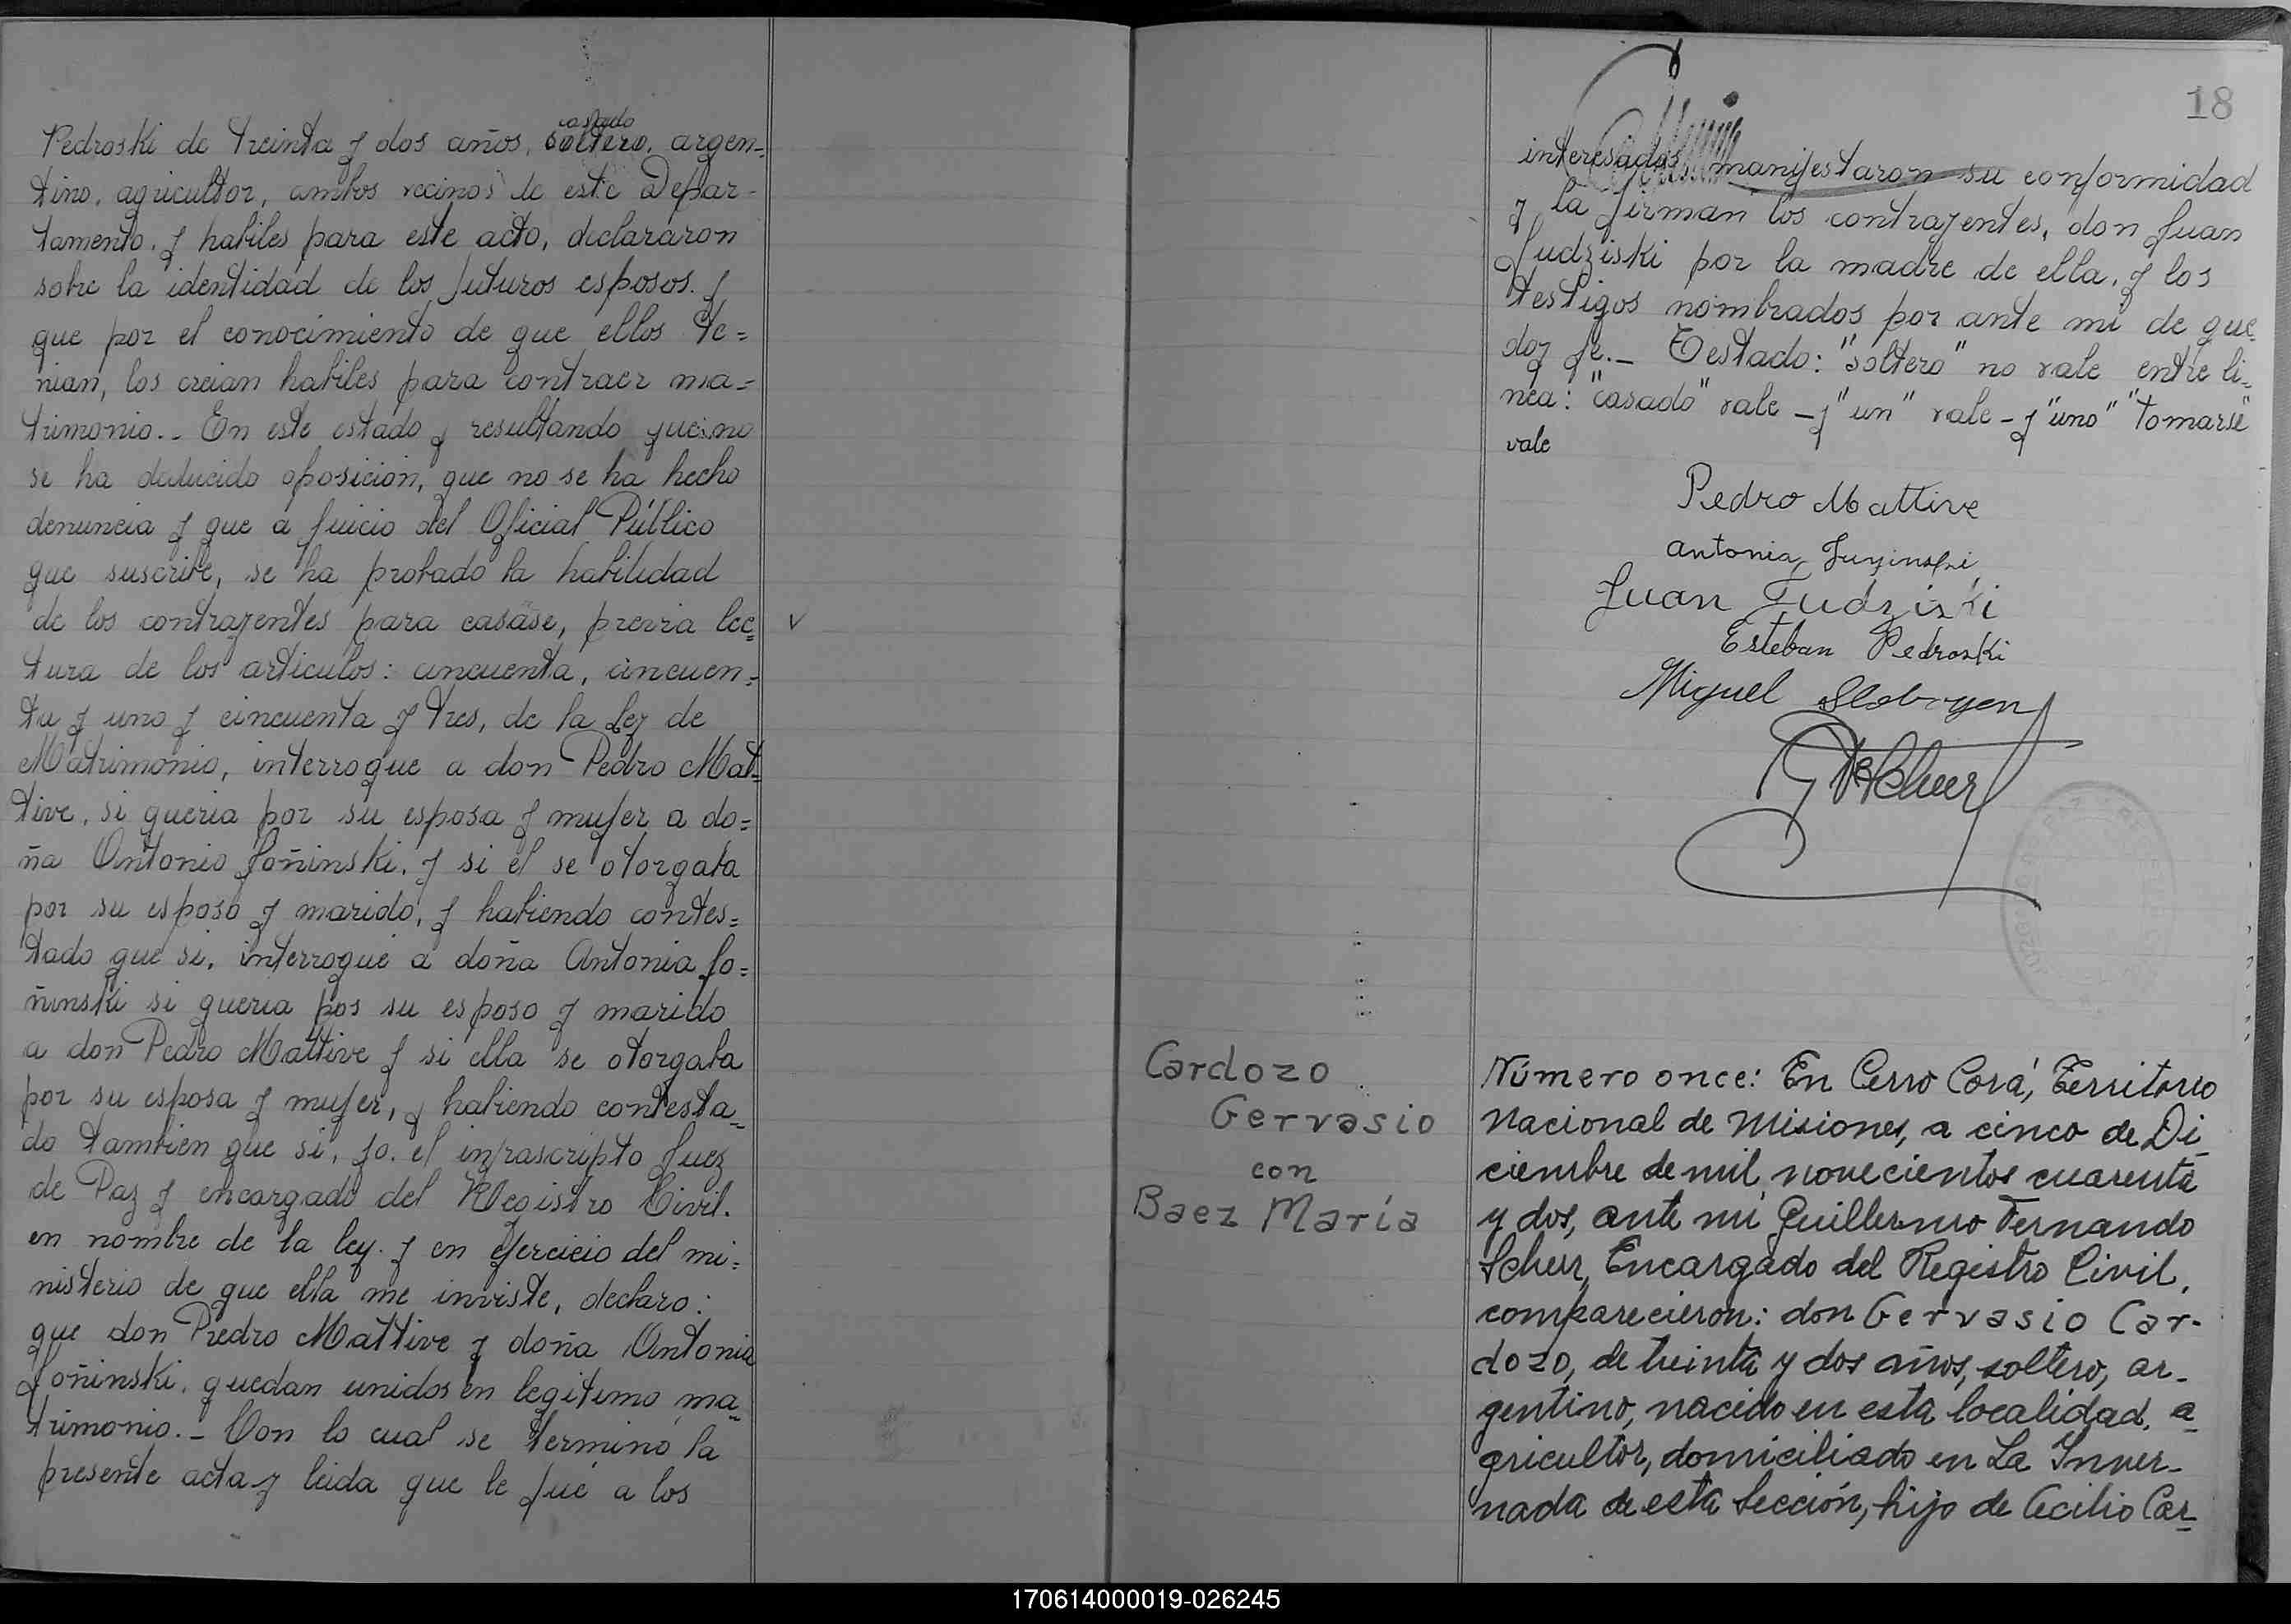 Pedroski de treinta y dos años, soltero, argen-
casado
tino, agricultor, ambos vecinos de este Depar-
tamento, y habiles para este acto, declararon
sobre la identidad de los futuros esposos y
que por el conocimiento de que ellos te=
nian, los creian habiles para contraer ma=
trimonio.- En este estado y resultando que no
se ha deducido oposición, que no se ha hecho
denuncia y que a juicio del Oficial Público
que suscribe, se ha probado la habilidad
de los contrayentes para casase, previa lec=
tura de los artículos: cincuenta, cincuen=
ta y uno y cincuenta y tres, de la Ley de
Matrimonio, interroque a don Pedro Mat=
tive, si queria por su esposa y mujer a do=
ña Antonio Joñinski, y si el se otorgaba
por su esposo y marido, y habiendo contes=
tado que si, interroqué a doña Antonia Jo=
ñinski si queria pos su esposo y marido
a don Pedro Mattive y si ella se otorgaba
por su esposa y mujer, y habiendo contesta=
do tambien que si, yo, el infrascripto Juez
de Paz y encargado del Registro Civil,
en nombre de la ley y en ejercicio del mi=
nisterio de que ella me inviste, declaro:
que don Predro Mattive y doña Antonia
Joñinski, quedan unidos en legitimo ma=
trimonio.- Con lo cual se terminó la
presente acta y leida que le fué a los
v
18
interesados manifestaron su conformidad
y la firman los contrayentes, don Juan
Judziski por la madre de ella, y los
testigos nombrados por ante mi de que
doy fe.- Testado: "soltero" no vale entre li=
nea: "casado" vale - y "un" vale - y "uno" "tomarse"
vale
Pedro Mattive
Antonia
Juan Judziski
Esteban Pedroski
Miguel
GFScherr
Cardozo
Gervasio
con
Baez María
Número once: En Cerro Corá, Territorio
Nacional de Misiones, a cinco de Di_
ciembre de mil novecientos cuarenta
y dos, ante mí Guillermo Fernando
Scherr, Encargado del Registro Civil,
comparecieron: don Gervasio Car-
dozo, de treinta y dos años, soltero, ar_
gentino, nacido en esta localidad, a_
gricultor, domiciliado en La Inver_
nada de esta Sección, hijo de Cecilio Car_
170614000019-026245